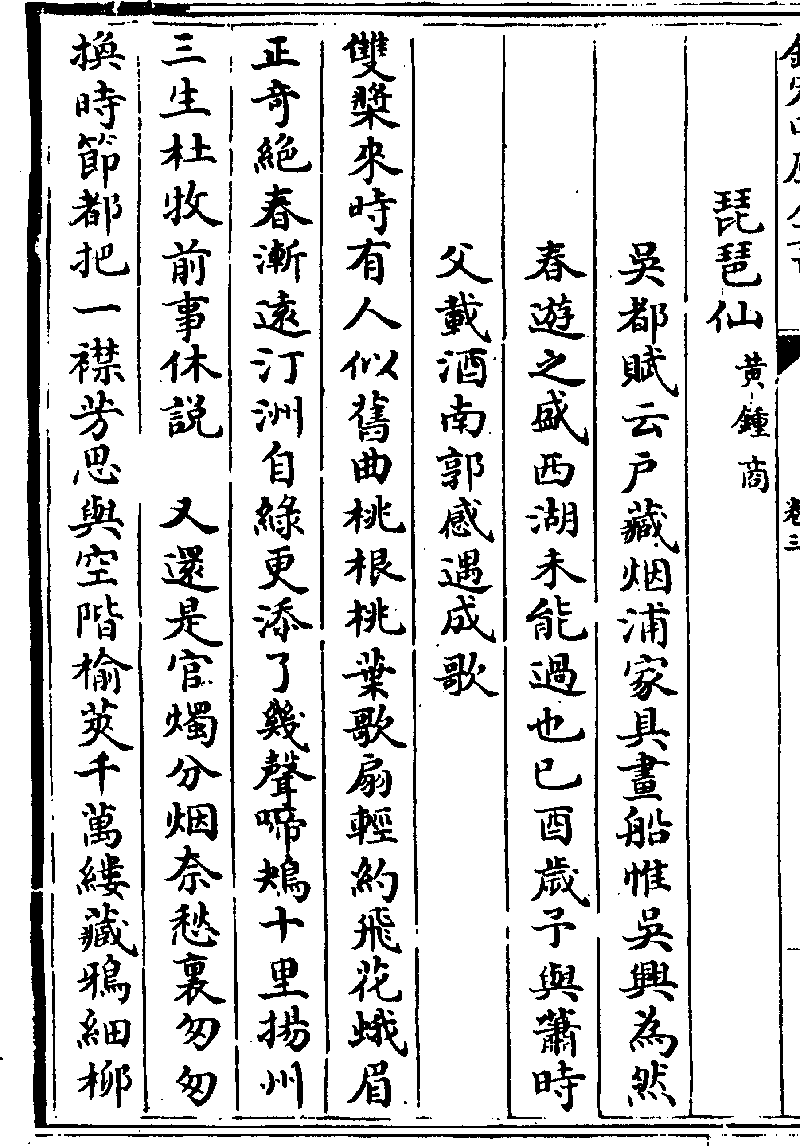 琵琶仙 黄鍾商
吳都賦云户藏烟浦家具畫船惟吳興為然
春遊之盛西湖未能過也已酉歲予與蕭時
父載酒南郭感遇成歌
雙槳來時有人似舊曲桃根桃葉歌扇輕約飛花蛾眉
正奇絶春漸逺汀洲自綠更添了幾聲啼鴂十里揚州
三生杜牧前事休説 又還是宫燭分烟奈愁裏匆匆
換時節都把一襟芳思與空階榆莢千萬縷藏鴉細柳
卷三